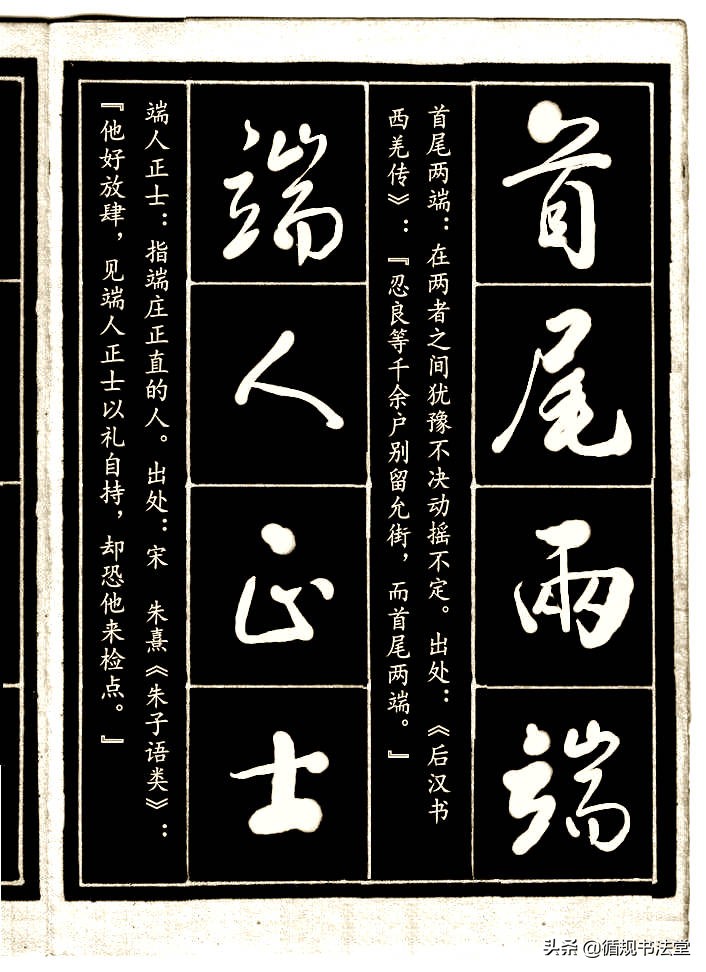 首尾兩端
首尾两端：在两者之间犹豫不决动摇不定。出处：《后汉书
西羌传》：『忍良等千余户别留允街，而首尾两端。』
端人正士
端人正士：指端庄正直的人。出处：宋 朱熹《朱子语类》：
『他好放肆，见端人正士以礼自持，却恐他来检点。』
头条 @循规书法堂